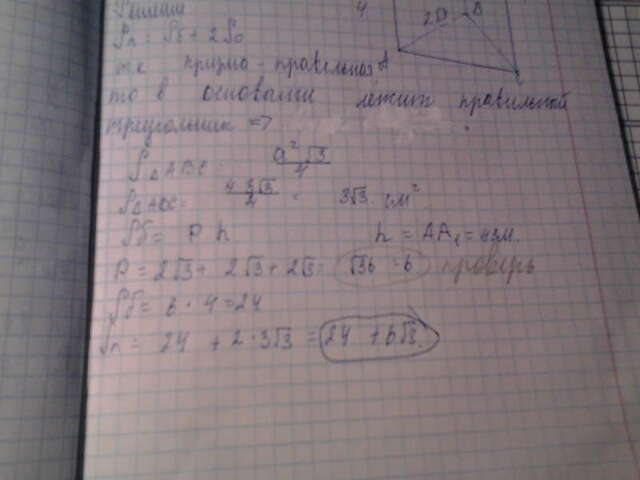 Решение
4
2√3
B
Sп = Sб + 2So
тк призма - правильная A
то в основании лежит правильный
треугольник =>
S△ABC = a²√3 / 4
S△ABC = 4·3√3 / 4 = 3√3 см²
Sб = P h h = AA₁ = 4см.
P = 2√3 + 2√3 + 2√3 = √36 = 6 проверь
Sб = 6 · 4 = 24
Sп = 24 + 2 · 3√3 = 24 + 6√3.